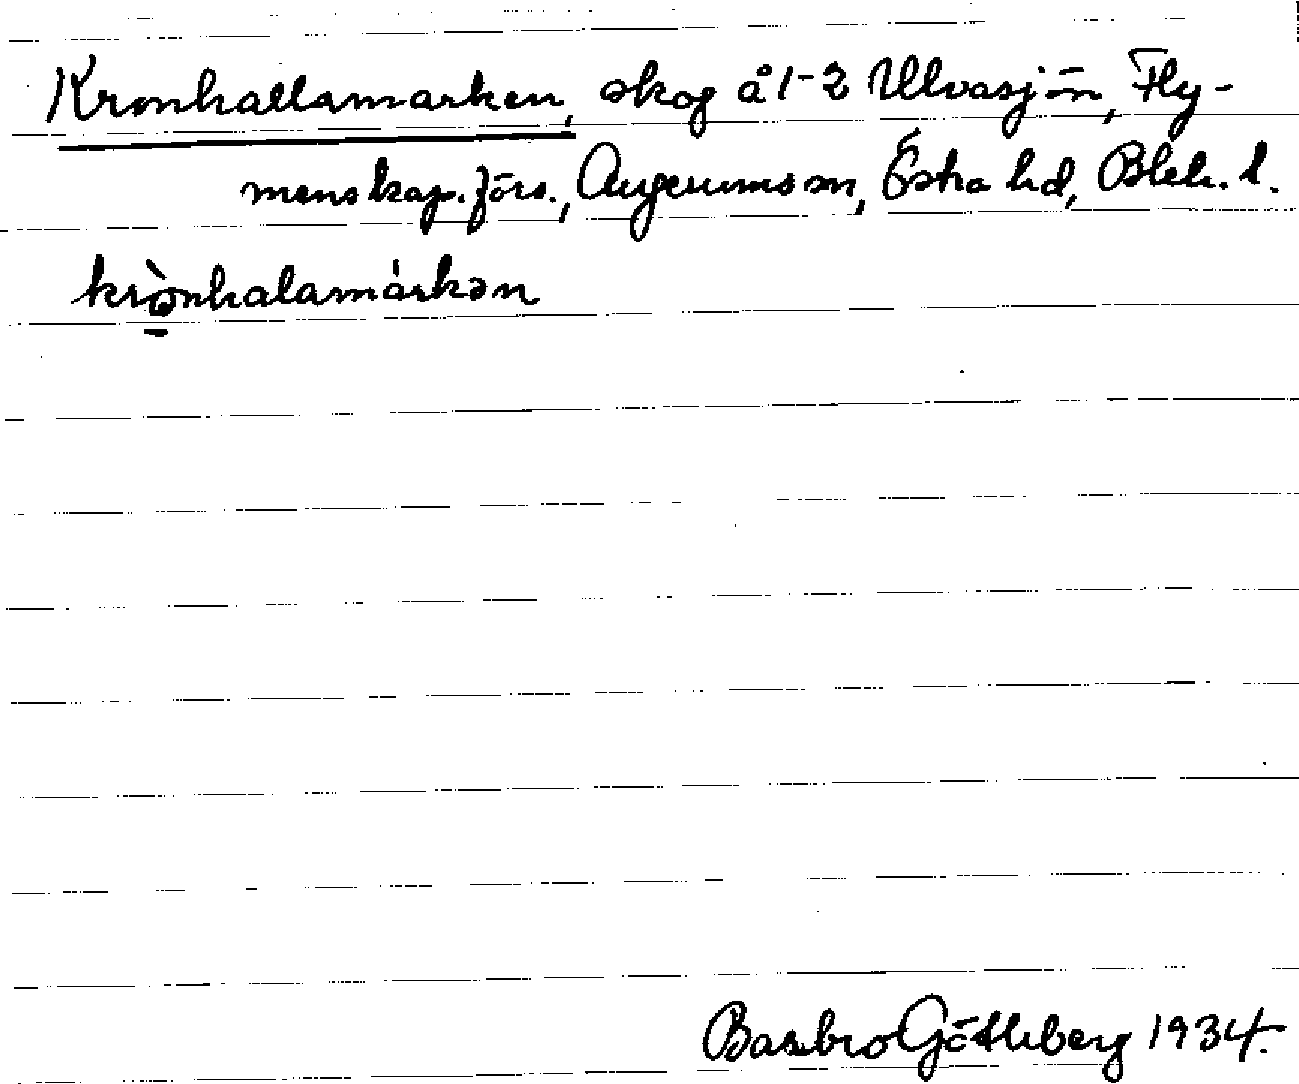 Kronhallamarken, skog å 1-2 Ulvasjön, Fly-
mens kap. förs., Augerums sn, Östra hd, Blek. l.
krònhalamárkən
Barbro Götheberg 1934.